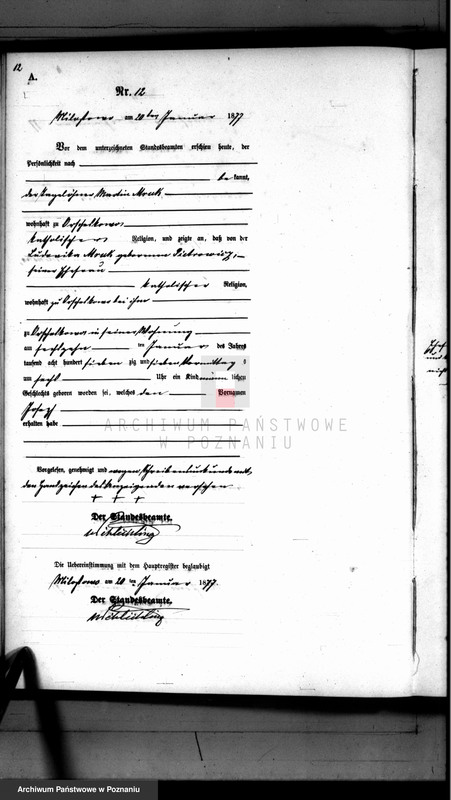 12
A.
Nr. 12
Miloslaw am 20ten Januar 1877
Vor dem unterzeichneten Standesbeamten erschien heute, der
Persönlichkeit nach
be kannt,
der Tagelöhner Martin
wohnhaft zu
katholischer Religion, und zeigte an, daß von der
Ludovika geborenen
seiner Ehefrau
katholischer Religion,
wohnhaft zu bei ihm
zu in seiner Wohnung
am sechzehn ten Januar des Jahres
tausend acht hundert sieben zig und sieben Vormittag s
um sechs Uhr ein Kind männ lichen
Geschlechts geboren worden sei, welches den Vornamen
Joseph
erhalten habe
Vorgelesen, genehmigt und wegen Schreibensunkunde mit
dem Handzeichen des Anzeigenden versehen
+ + +
Der Standesbeamte.
Die Uebereinstimmung mit dem Hauptregister beglaubigt
Miloslaw am 20 ten Januar 1877.
Der Standesbeamte.
ARCHIWUM PAŃSTWOWE
W POZNANIU
Archiwum Państwowe w Poznaniu